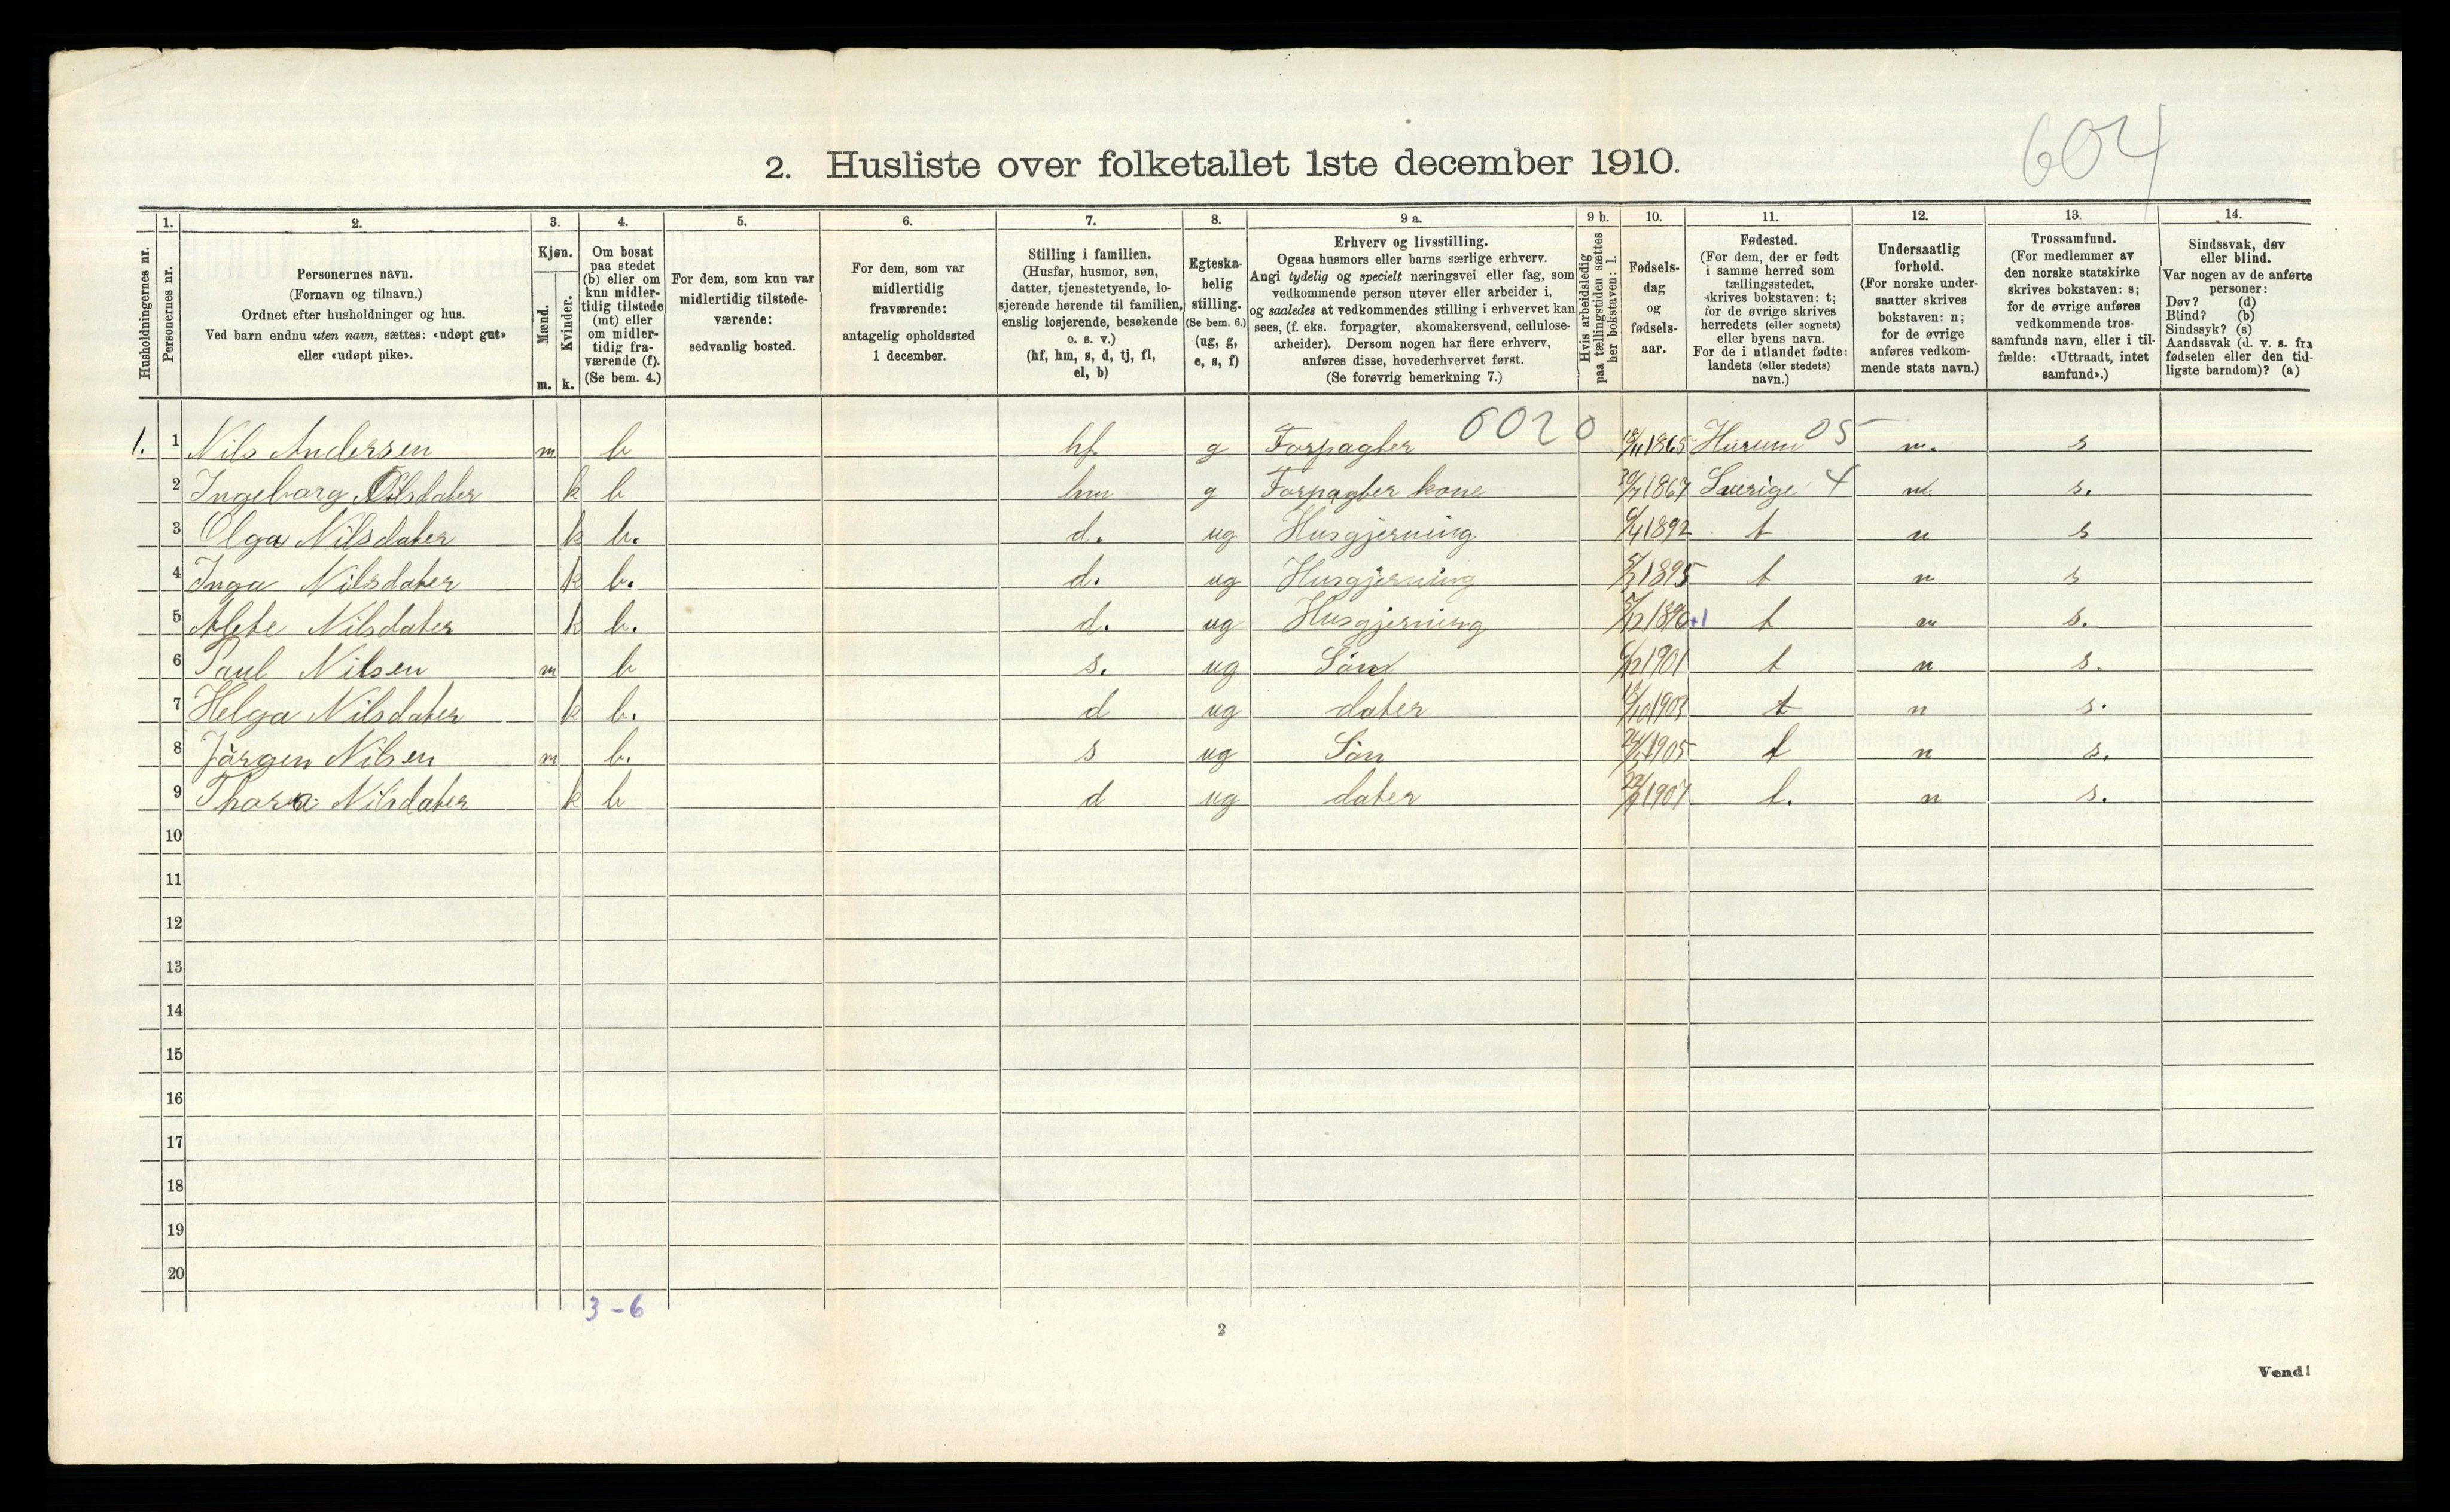 604
2. Husliste over folketallet 1ste december 1910.
Husholdningernes nr.
1.
Personernes nr.
2.
Personernes navn.
(Fornavn og tilnavn.)
Ordnet efter husholdninger og hus.
Ved barn endnu uten navn, sættes: «udøpt gut»
eller «udøpt pike».
3.
Kjøn.
Mænd.
Kvinder.
m. k.
4.
Om bosat
paa stedet
(b) eller om
kun midler-
tidig tilstede
(mt) eller
om midler-
tidig fra-
værende (f).
(Se bem. 4.)
5.
For dem, som kun var
midlertidig tilstede-
værende:
sedvanlig bosted.
6.
For dem, som var
midlertidig
fraværende:
antagelig opholdssted
1 december.
7.
Stilling i familien.
(Husfar, husmor, søn,
datter, tjenestetyende, lo-
sjerende hørende til familien,
enslig losjerende, besøkende
o. s. v.)
(hf, hm, s, d, tj, fl,
el, b)
8.
Egteska-
belig
stilling.
(Se bem. 6.)
(ug, g,
e, s, f)
9 a.
Erhverv og livsstilling.
Ogsaa husmors eller barns særlige erhverv.
Angi tydelig og specielt næringsvei eller fag, som
vedkommende person utøver eller arbeider i,
og saaledes at vedkommendes stilling i erhvervet kan
sees, (f. eks. forpagter, skomakersvend, cellulose-
arbeider). Dersom nogen har flere erhverv,
anføres disse, hovederhvervet først.
(Se forøvrig bemerkning 7.)
9 b.
Hvis arbeidsledig
paa tællingstiden sættes
her bokstaven: l.
10.
Fødsels-
dag
og
fødsels-
aar.
11.
Fødested.
(For dem, der er født
i samme herred som
tællingsstedet,
skrives bokstaven: t;
for de øvrige skrives
herredets (eller sognets)
eller byens navn.
For de i utlandet fødte:
landets (eller stedets)
navn.)
12.
Undersaatlig
forhold.
(For norske under-
saatter skrives
bokstaven: n;
for de øvrige
anføres vedkom-
mende stats navn.)
13.
Trossamfund.
(For medlemmer av
den norske statskirke
skrives bokstaven: s;
for de øvrige anføres
vedkommende tros-
samfunds navn, eller i til-
fælde: «Uttraadt, intet
samfund».)
14.
Sindssvak, døv
eller blind.
Var nogen av de anførte
personer:
Døv? (d)
Blind? (b)
Sindssyk? (s)
Aandssvak (d. v. s. fra
fødselen eller den tid-
ligste barndom)? (a)
1. 1 Nils Andersen m b hf g Forpagter 6020 1865 Hurum 05 n. s
2 Ingeborg k b hm g Forpagter kone 1867 Sverige 4 n. s.
3 Olga Nilsdater k b. d. ug Husgjerning 1892 t n s
4 Inga Nilsdater k b. d. ug Husgjerning 1895 t n s
5 Nilsdater k b. d. ug Husgjerning +1 t n s.
6 Paul Nilsen m b s. ug Sön 1901 t n s.
7 Helga Nilsdater k b. d ug dater 1903 t n s.
8 Jörgen Nilsen m b. s ug Sön 1905 t n s.
9 Thora Nilsdater k b d ug dater 1907 t. n s.
10
11
12
13
14
15
16
17
18
19
20
3 - 6
2
Vend!